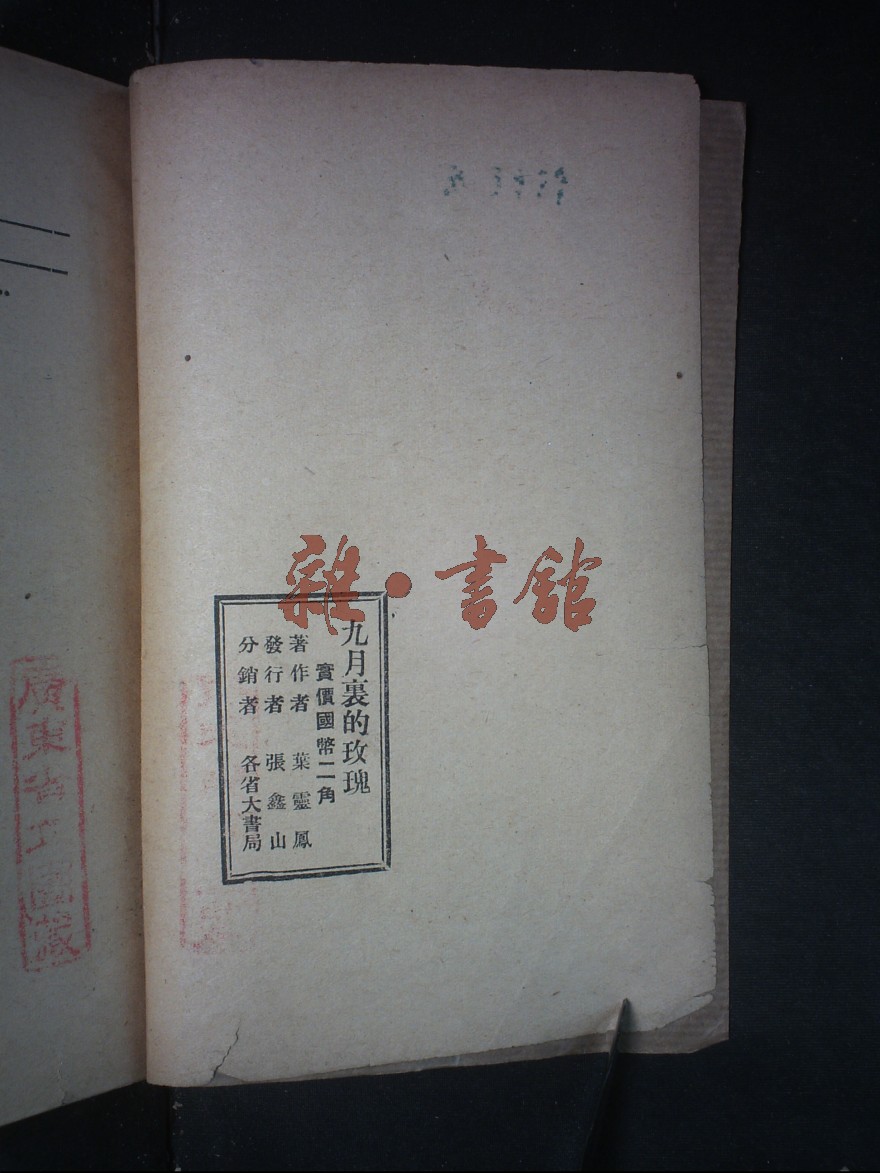 雜·書館
九月裏的玫瑰
實價國幣二角
著作者 葉靈鳳
發行者 張鑫山
分銷者 各省大書局